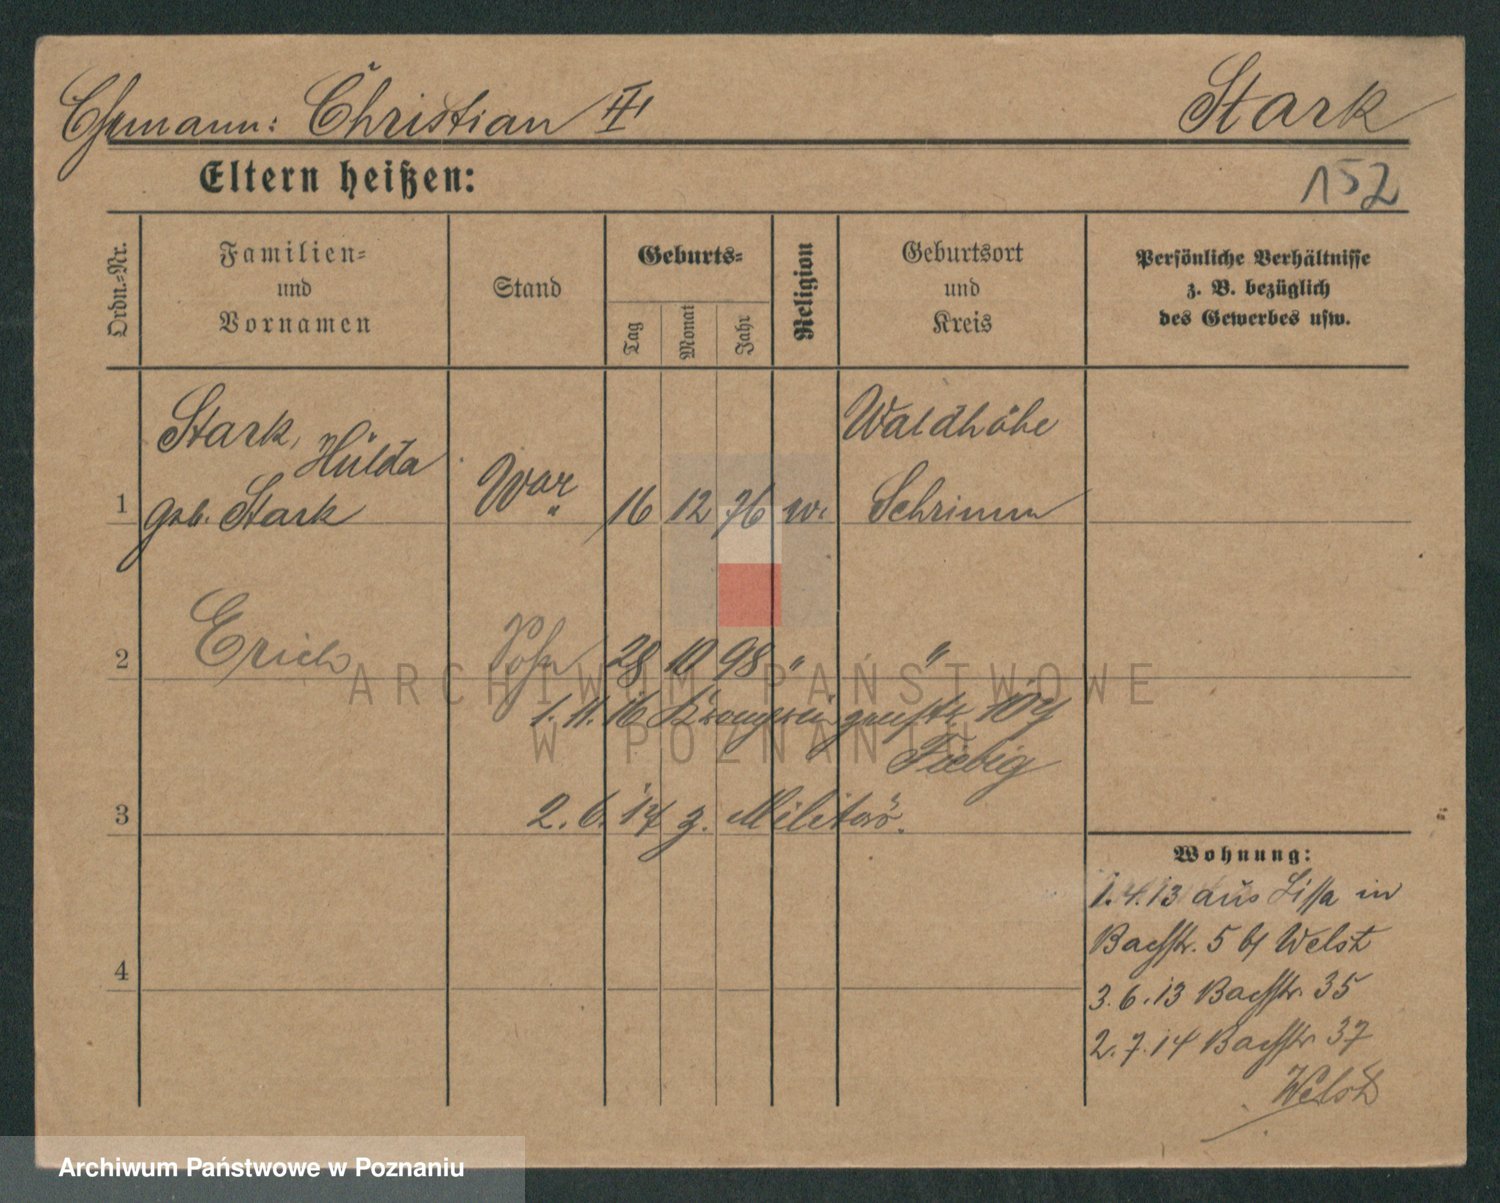 Ehemann: Christian II Stark
Eltern heißen:
152
Ordn.-Nr.
Familien-
und
Vornamen
Stand
Geburts-
Tag
Monat
Jahr
Religion
Geburtsort
und
Kreis
Persönliche Verhältnisse
z. B. bezüglich
des Gewerbes usw.
Stark, Hulda
geb. Stark
1
16 12 76
Waldhöhe
Schrimm
2 Erich Sohn 28 10 98 " "
1. 11. 16 104
Fiebig
3 2. 6. 17 z. Militär.
4
Wohnung:
1.4.13 aus Lissa in
Bachstr. 5 b/ Welst
3.6.13 Bachstr. 35
2.7.14 Bachstr 37
Welst
ARCHIWUM PAŃSTWOWE
W POZNANIU
Archiwum Państwowe w Poznaniu